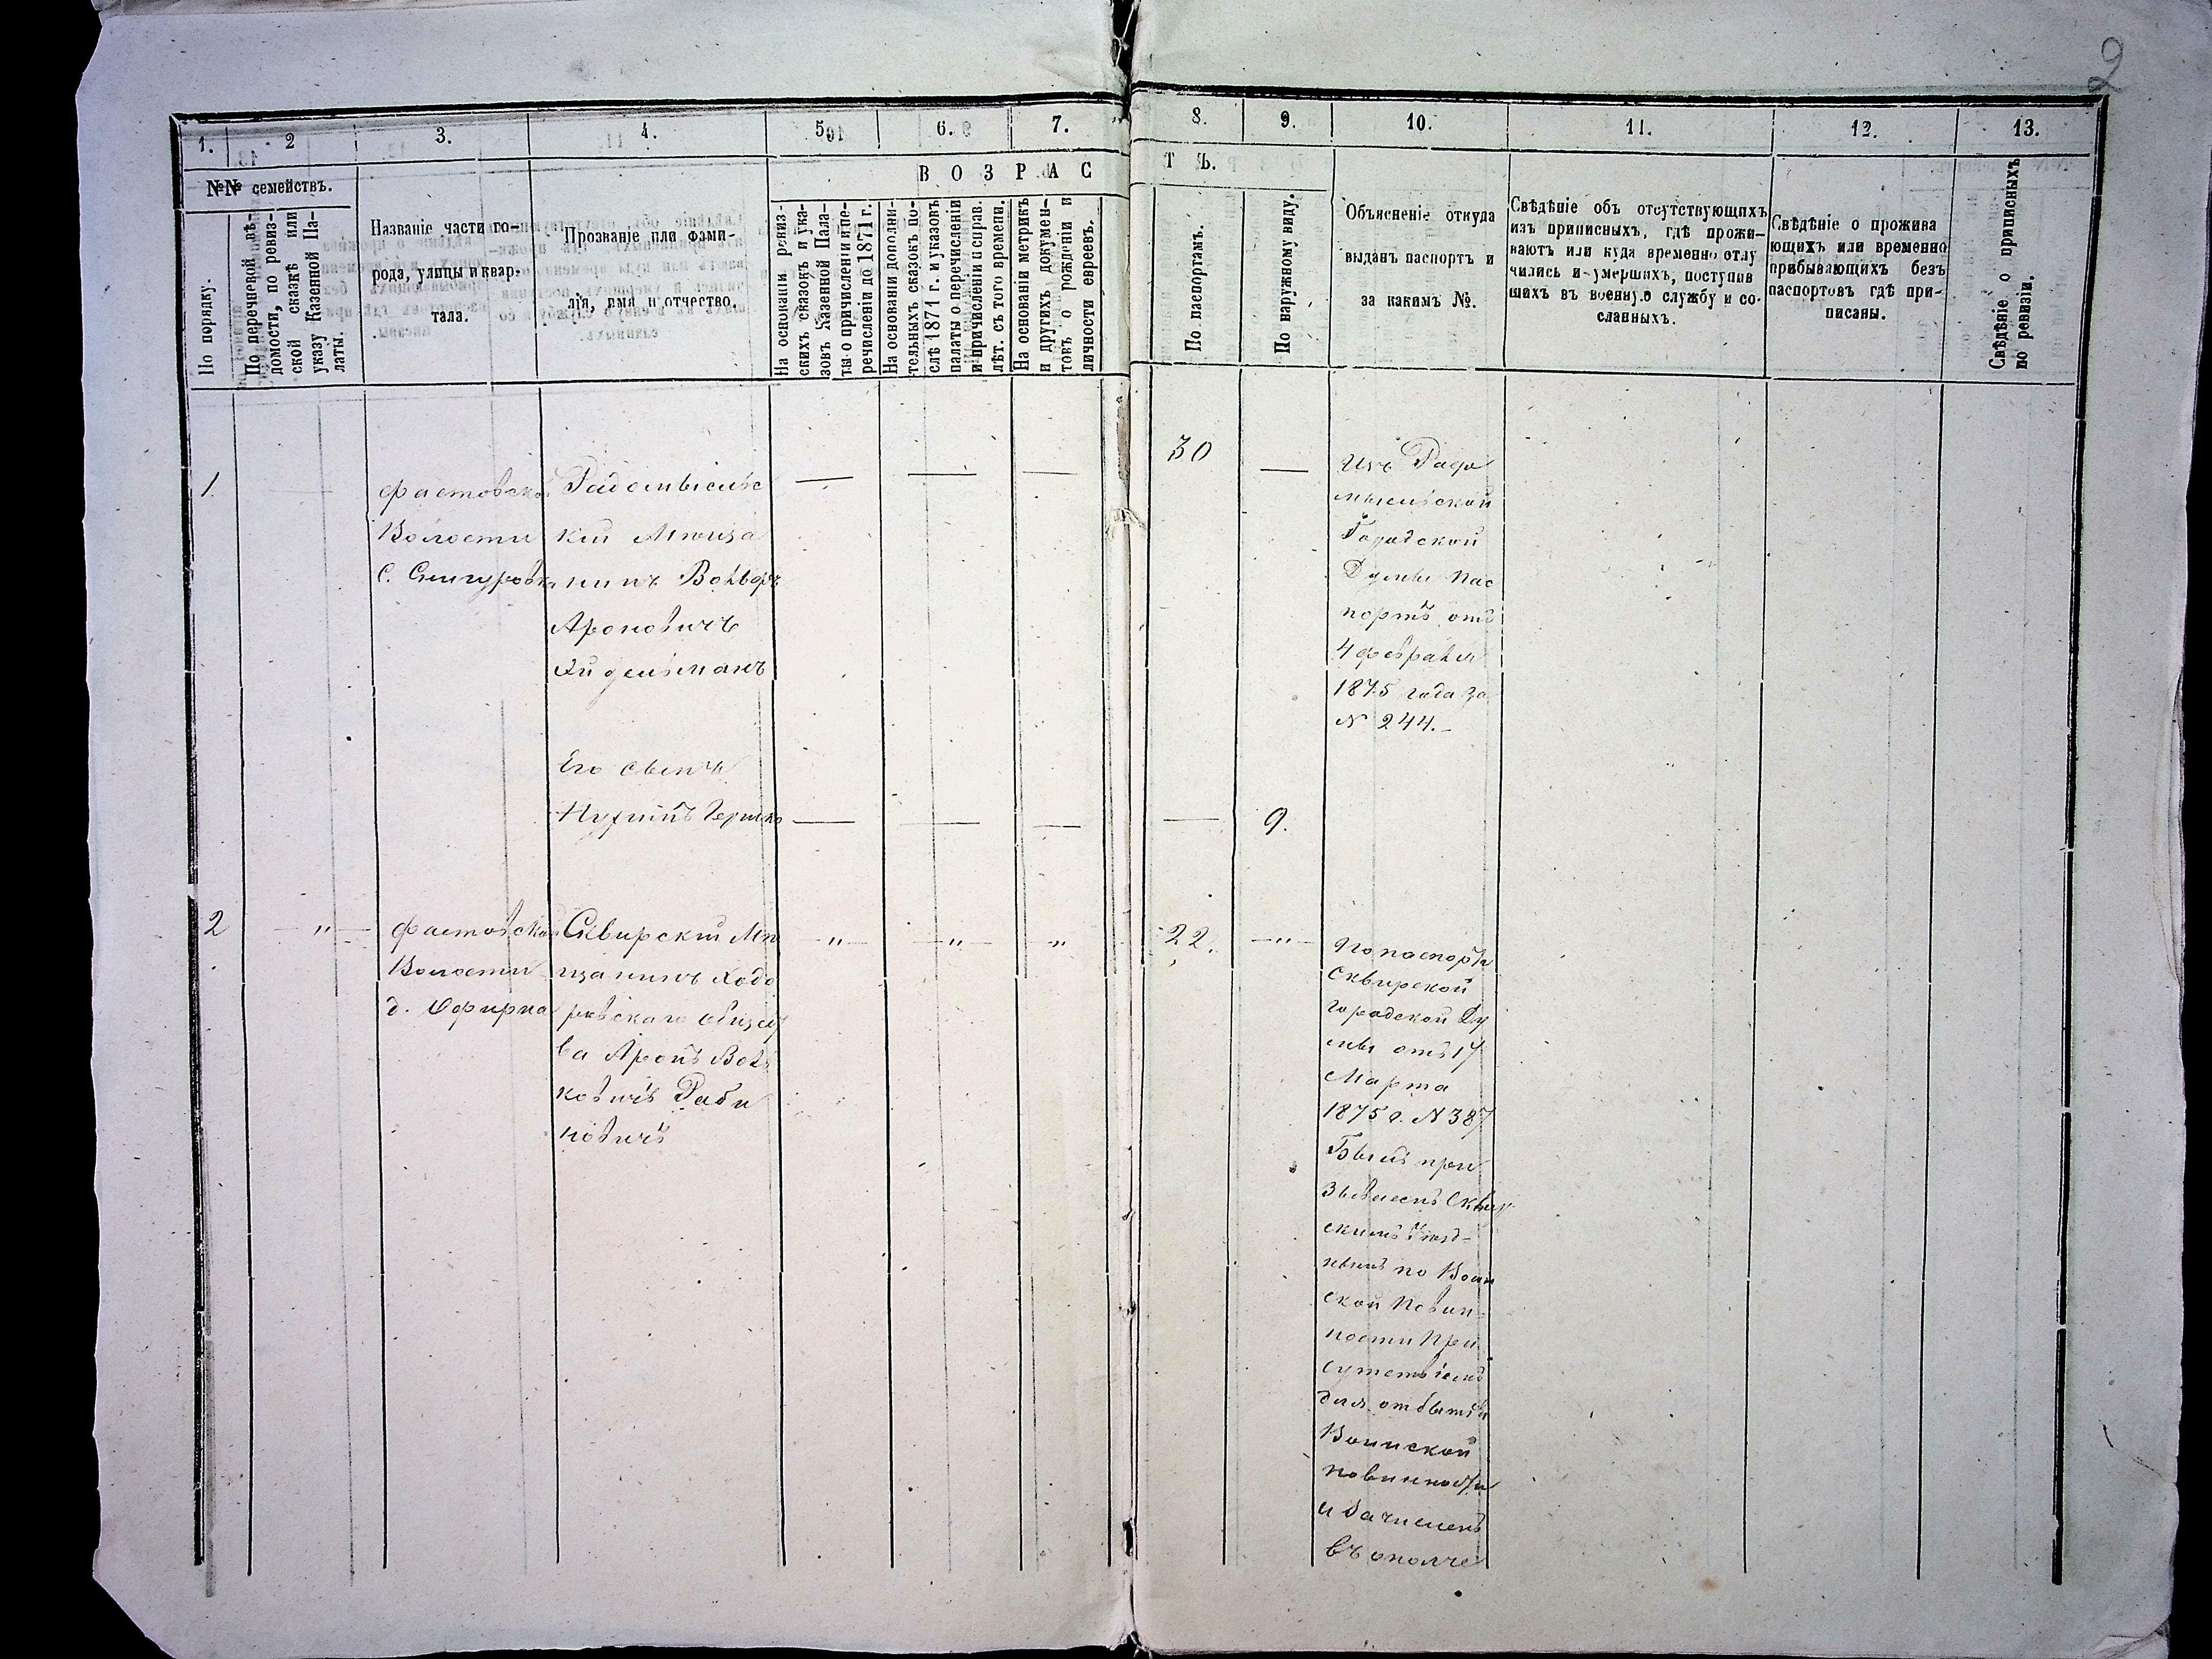 2
1.
2
3.
4.
5.
6.
7.
8.
9.
10.
11.
12.
13.
№№ семействъ.
В О З Р А С
Т Ъ.
По порядку.
По перечневой вѣ-
домости, по ревиз-
ской сказкѣ или
указу Казенной Па-
латы.
Названіе части го-
рода, улицы и квар-
тала.
Прозваніе или фами-
лія, имя и отчество.
На основаніи ревиз-
скихъ сказокъ и ука-
зовъ Казенной Пала-
ты о причисленіи и пе-
речисленіи до 1871 г.
На основаніи дополни-
тельныхъ сказокъ по-
слѣ 1871 г. и указовъ
палаты о перечисленіи
и причисленіи справ.
лѣт. съ того времени.
На основаніи метрикъ
и другихъ докумен-
товъ о рожденіи и
личности евреевъ.
По паспортамъ.
По наружному виду.
Объясненіе откуда
выданъ паспортъ и
за какимъ №.
Свѣдѣніе объ отсутствующихъ
изъ приписныхъ, гдѣ прожи-
ваютъ или куда временно отлу
чились и умершихъ, поступив
шихъ въ военную службу и со-
сланныхъ.
Свѣдѣніе о прожива
ющихъ или временно
прибывающихъ безъ
паспортовъ гдѣ при-
писаны.
Свѣдѣніе о приписныхъ
по ревизіи.
1.
Фастовской
Волости
С. Снигуровка
Радомысльс
кій Мѣща
нинъ Вольфъ
Ароновичъ
Эйдельманъ
— — —
30
—
Изъ Радо
мысльской
Городской
Думы пас
портъ отъ
4 февраля
1875 года за
№ 244.-
Его сынъ
Нухимъ Гершко
— — — —
9.
2
— " —
Фастовской
Волости
д. Офирна
Сквирскій Мѣ
щанинъ Ходо
рковскаго общес
ва Аронъ Воль
ковичъ Раби
новичъ
— " — — " — "
22.
— " —
По паспорту
Сквирской
городской Ду
мы отъ 17
Марта
1875 г. № 387
Былъ при
званъ Сквир
скимъ Уѣзд-
нымъ по Воин
ской Повин-
ности При
сутствіемъ
для отбытія
Воинской
повинности
и зачисленъ
въ ополче